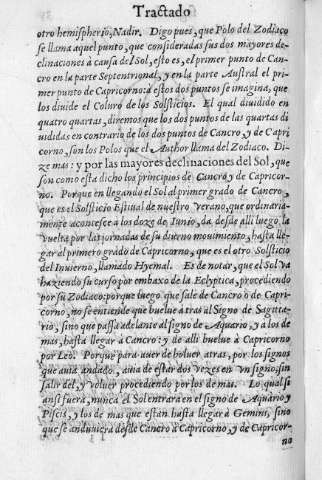 Tractado
otro hemispherio, Nadir. Digo pues, que Polo del Zodiaco
se llama aquel punto, que consideradas sus dos mayores de-
clinaciones à causa del Sol, esto es, el primer punto de Can-
cro en la parte Septentrional, y en la parte Austral el pri-
mer punto de Capricorno: à estos dos puntos se imagina, que
los diuide el Coluro de los Solsticios. El qual diuidido en
quatro quartas, diremos que los dos puntos de las quartas di
uididas en contrario de los dos puntos de Cancro, y de Capri
corno, son los Polos que el Author llama del Zodiaco. Di-
ze mas: y por las mayores declinaciones del Sol, que
son como esta dicho los principios de Cancro y de Capricor-
no. Porque en llegando el Sol al primer grado de Cancro,
que es el Solsticio Estiual de nuestro Verano, que ordinaria-
mente acontesce a los doze de Iunio, da, desde alli luego la
vuelta por las jornadas de su diurno mouimiento, hasta lle-
gar al primero grado de Capricorno, que es el otro Solsticio
del Inuierno, llamado Hyemal. Es de notar, que el Sol va
haziendo su curso por embaxo de la Eclyptica, procediendo
por su Zodiaco: porque luego que sale de Cancro o de Capri-
corno, no se entiende que buelue atras al Signo de Sagitta-
rio, sino que passa adelante al signo de Aquario, y a los de
mas, hasta llegar à Cancro: y de alli buelue à Capricorno
por Leo. Porque para auer de boluer atras, por los signos
que auia andado, auia de estar dos vezes en vn signo, sin
salir del, y voluer procediendo por los de mas. Lo qual si
ansi fuera, nunca el Sol entrara en el signo de Aquario y
Piscis, y los de mas que estan hasta llegar à Geminis, sino
que se anduuiera desde Cancro à Capricorno, y de Capricor-
no